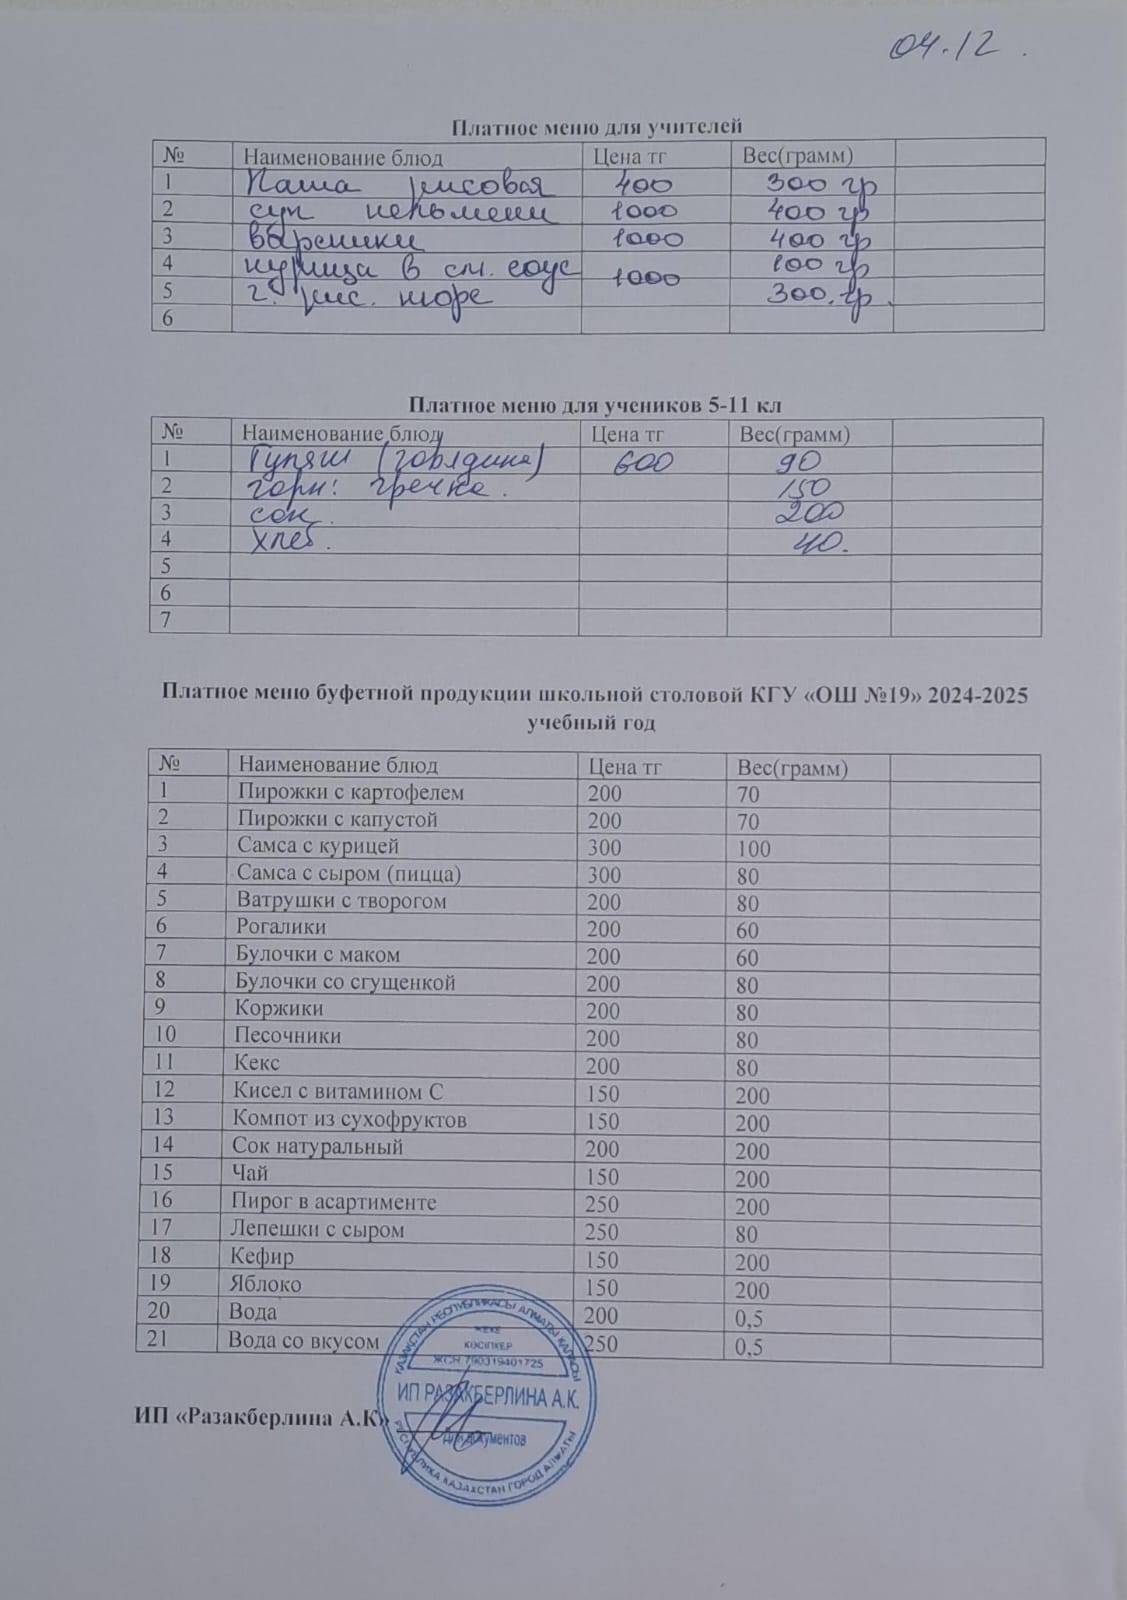 04.12.
Платное меню для учителей
№ Наименование блюд Цена тг Вес(грамм)
1 Каша рисовая 400 300 гр
2 суп пельмени 1000 400 гр
3 вареники 1000 400 гр
4 курица в см. соус 1000 100 гр
5 г. рис. пюре 300. гр.
6
Платное меню для учеников 5-11 кл
№ Наименование блюд Цена тг Вес(грамм)
1 Гуляш (говядина) 600 90
2 гарн: гречка. 150
3 сок. 200
4 хлеб. 40.
5
6
7
Платное меню буфетной продукции школьной столовой КГУ «ОШ №19» 2024-2025
учебный год
№ Наименование блюд Цена тг Вес(грамм)
1 Пирожки с картофелем 200 70
2 Пирожки с капустой 200 70
3 Самса с курицей 300 100
4 Самса с сыром (пицца) 300 80
5 Ватрушки с творогом 200 80
6 Рогалики 200 60
7 Булочки с маком 200 60
8 Булочки со сгущенкой 200 80
9 Коржики 200 80
10 Песочники 200 80
11 Кекс 200 80
12 Кисел с витамином С 150 200
13 Компот из сухофруктов 150 200
14 Сок натуральный 200 200
15 Чай 150 200
16 Пирог в асартименте 250 200
17 Лепешки с сыром 250 80
18 Кефир 150 200
19 Яблоко 150 200
20 Вода 200 0,5
21 Вода со вкусом 250 0,5
ИП «Разакберлина А.К»
ҚАЗАҚСТАН РЕСПУБЛИКАСЫ АЛМАТЫ ҚАЛАСЫ
ЖЕКЕ
КӘСІПКЕР
ЖСН 790319401725
ИП РАЗАКБЕРЛИНА А.К.
Для документов
РЕСПУБЛИКА КАЗАХСТАН ГОРОД АЛМАТЫ